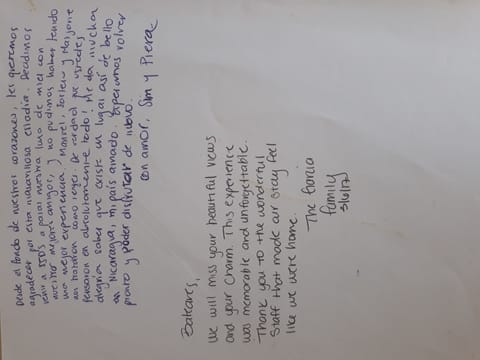 Desde el fondo de nuestros corazones, les queremos
agradecer por esta maravillosa estadía. Decidimos
venir a a pasar nuestra luna de miel con
nuestros mejores amigos, y no pudimos haber tenido
una mejor experiencia. Manuel, y Marjorie
nos trataron como reyes. De verdad que ustedes
pensaron en absolutamente todo! Me da mucha
alegría saber que existe un lugar así de bello
en Nicaragua, mi país amado. Esperamos volver
pronto y poder disfrutar de nuevo.
con amor, y Piera
Balcares,
We will miss your beautiful views
and your charm. This experience
was memorable and unforgettable.
Thank you to the wonderful
Staff that made our stay feel
like we were home.
The Garcia
family
3/6/17